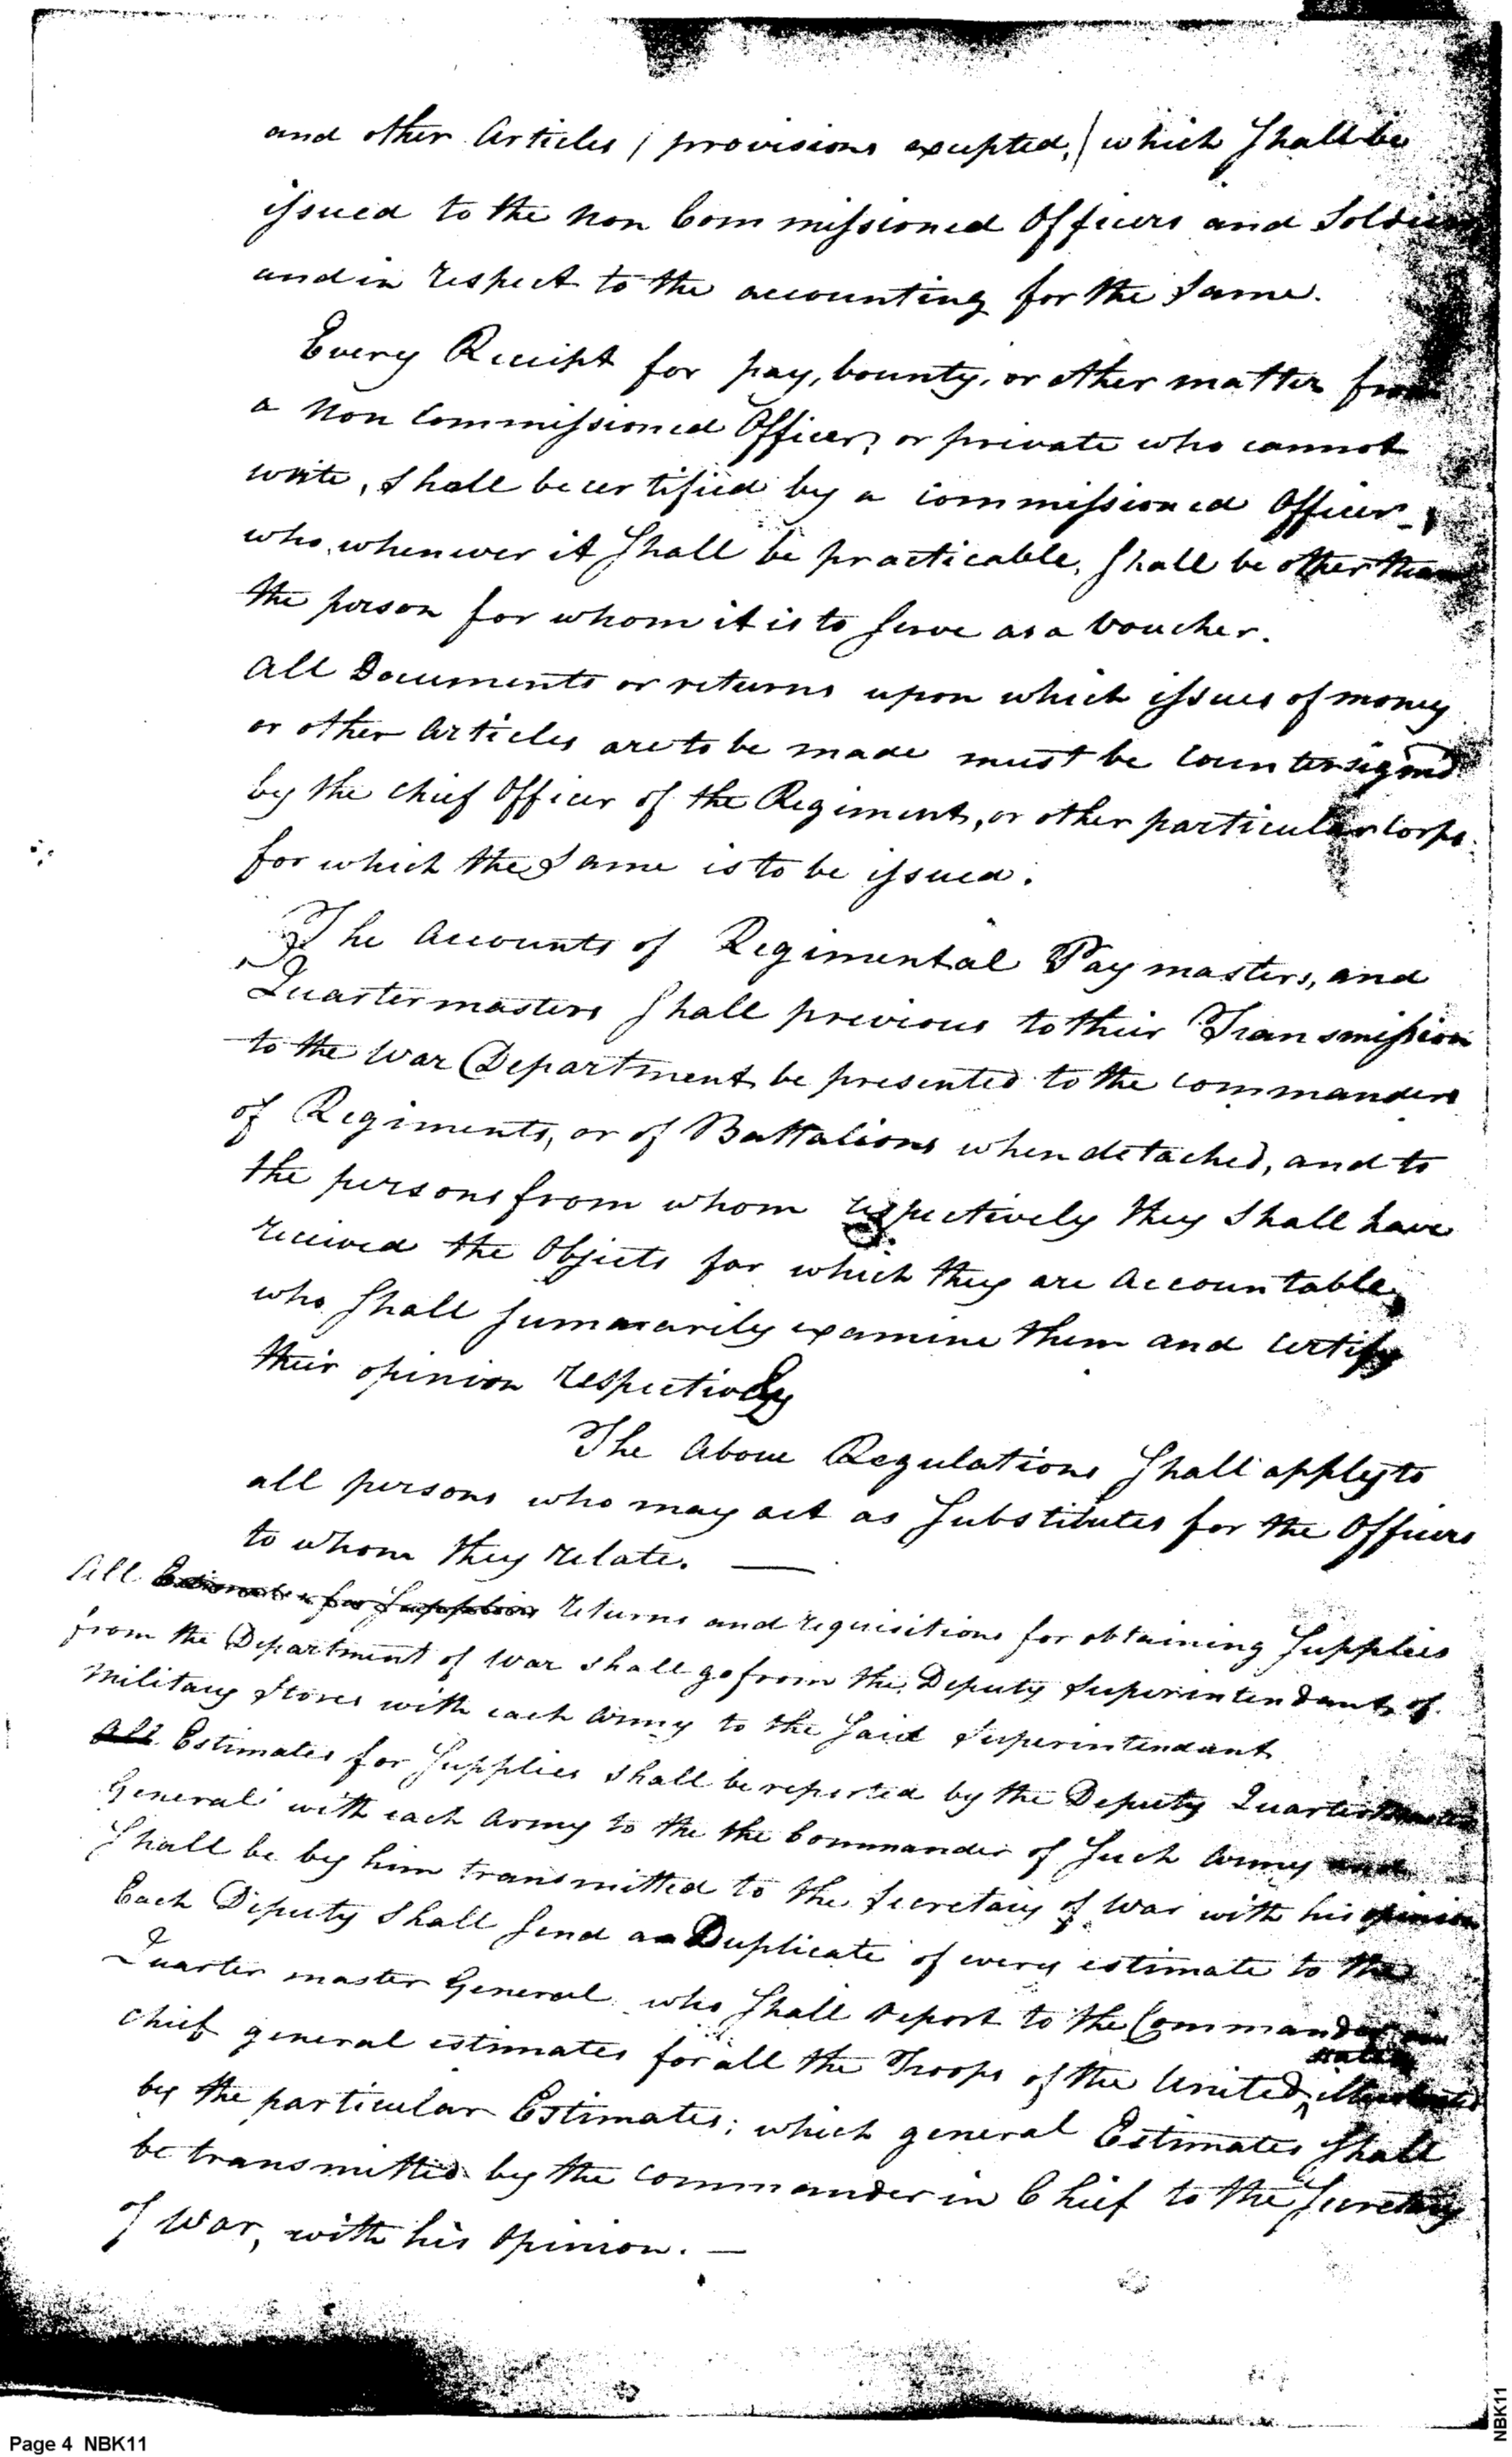 and other Articles / provisions excepted, / which Shall be
issued to the Non Commissioned Officers and Soldiers
and in respect to the accounting for the Same.
Every Receipt for pay, bounty, or other matter from
a Non Commissioned Officer, or private who cannot
write, Shall be certified by a Commissioned Officer,
who, whenever it Shall be practicable, Shall be other than
the person for whom it is to Serve as a Voucher.
All Documents or returns upon which issues of money
or other Articles are to be made must be Countersigned
by the chief Officer of the Regiment, or other particular Corps
for which the Same is to be issued.
The Accounts of Regimental Paymasters, and
Quartermasters Shall previous to their Transmission
to the War Department be presented to the Commanders
of Regiments, or of Battalions when detached, and to
the persons from whom respectively they Shall have
received the Objects for which they are Accountable,
who Shall Summarily examine them and Certify
their opinion respectively
The Above Regulations Shall apply to
all persons who may act as Substitutes for the Officers
to whom they relate. —
All Estimates for Supplies returns and requisitions for obtaining Supplies
from the Department of War Shall go from the Deputy Superintendants of
Military Stores with each Army to the Said Superintendant
All Estimates for Supplies Shall be reported by the Deputy Quartermaster
General with each Army to the the Commander of Such Army and
Shall be by him transmitted to the Secretary of War with his opinion
Each Deputy Shall Send a Duplicate of every estimate to the
Quarter master General who Shall report to the Commander in
States
Chief general estimates for all the Troops of the United illustrated
by the particular Estimates; which general Estimates Shall
be transmitted by the Commander in Chief to the Secretary
of War, with his Opinion. —
Page 4 NBK11
NBK11